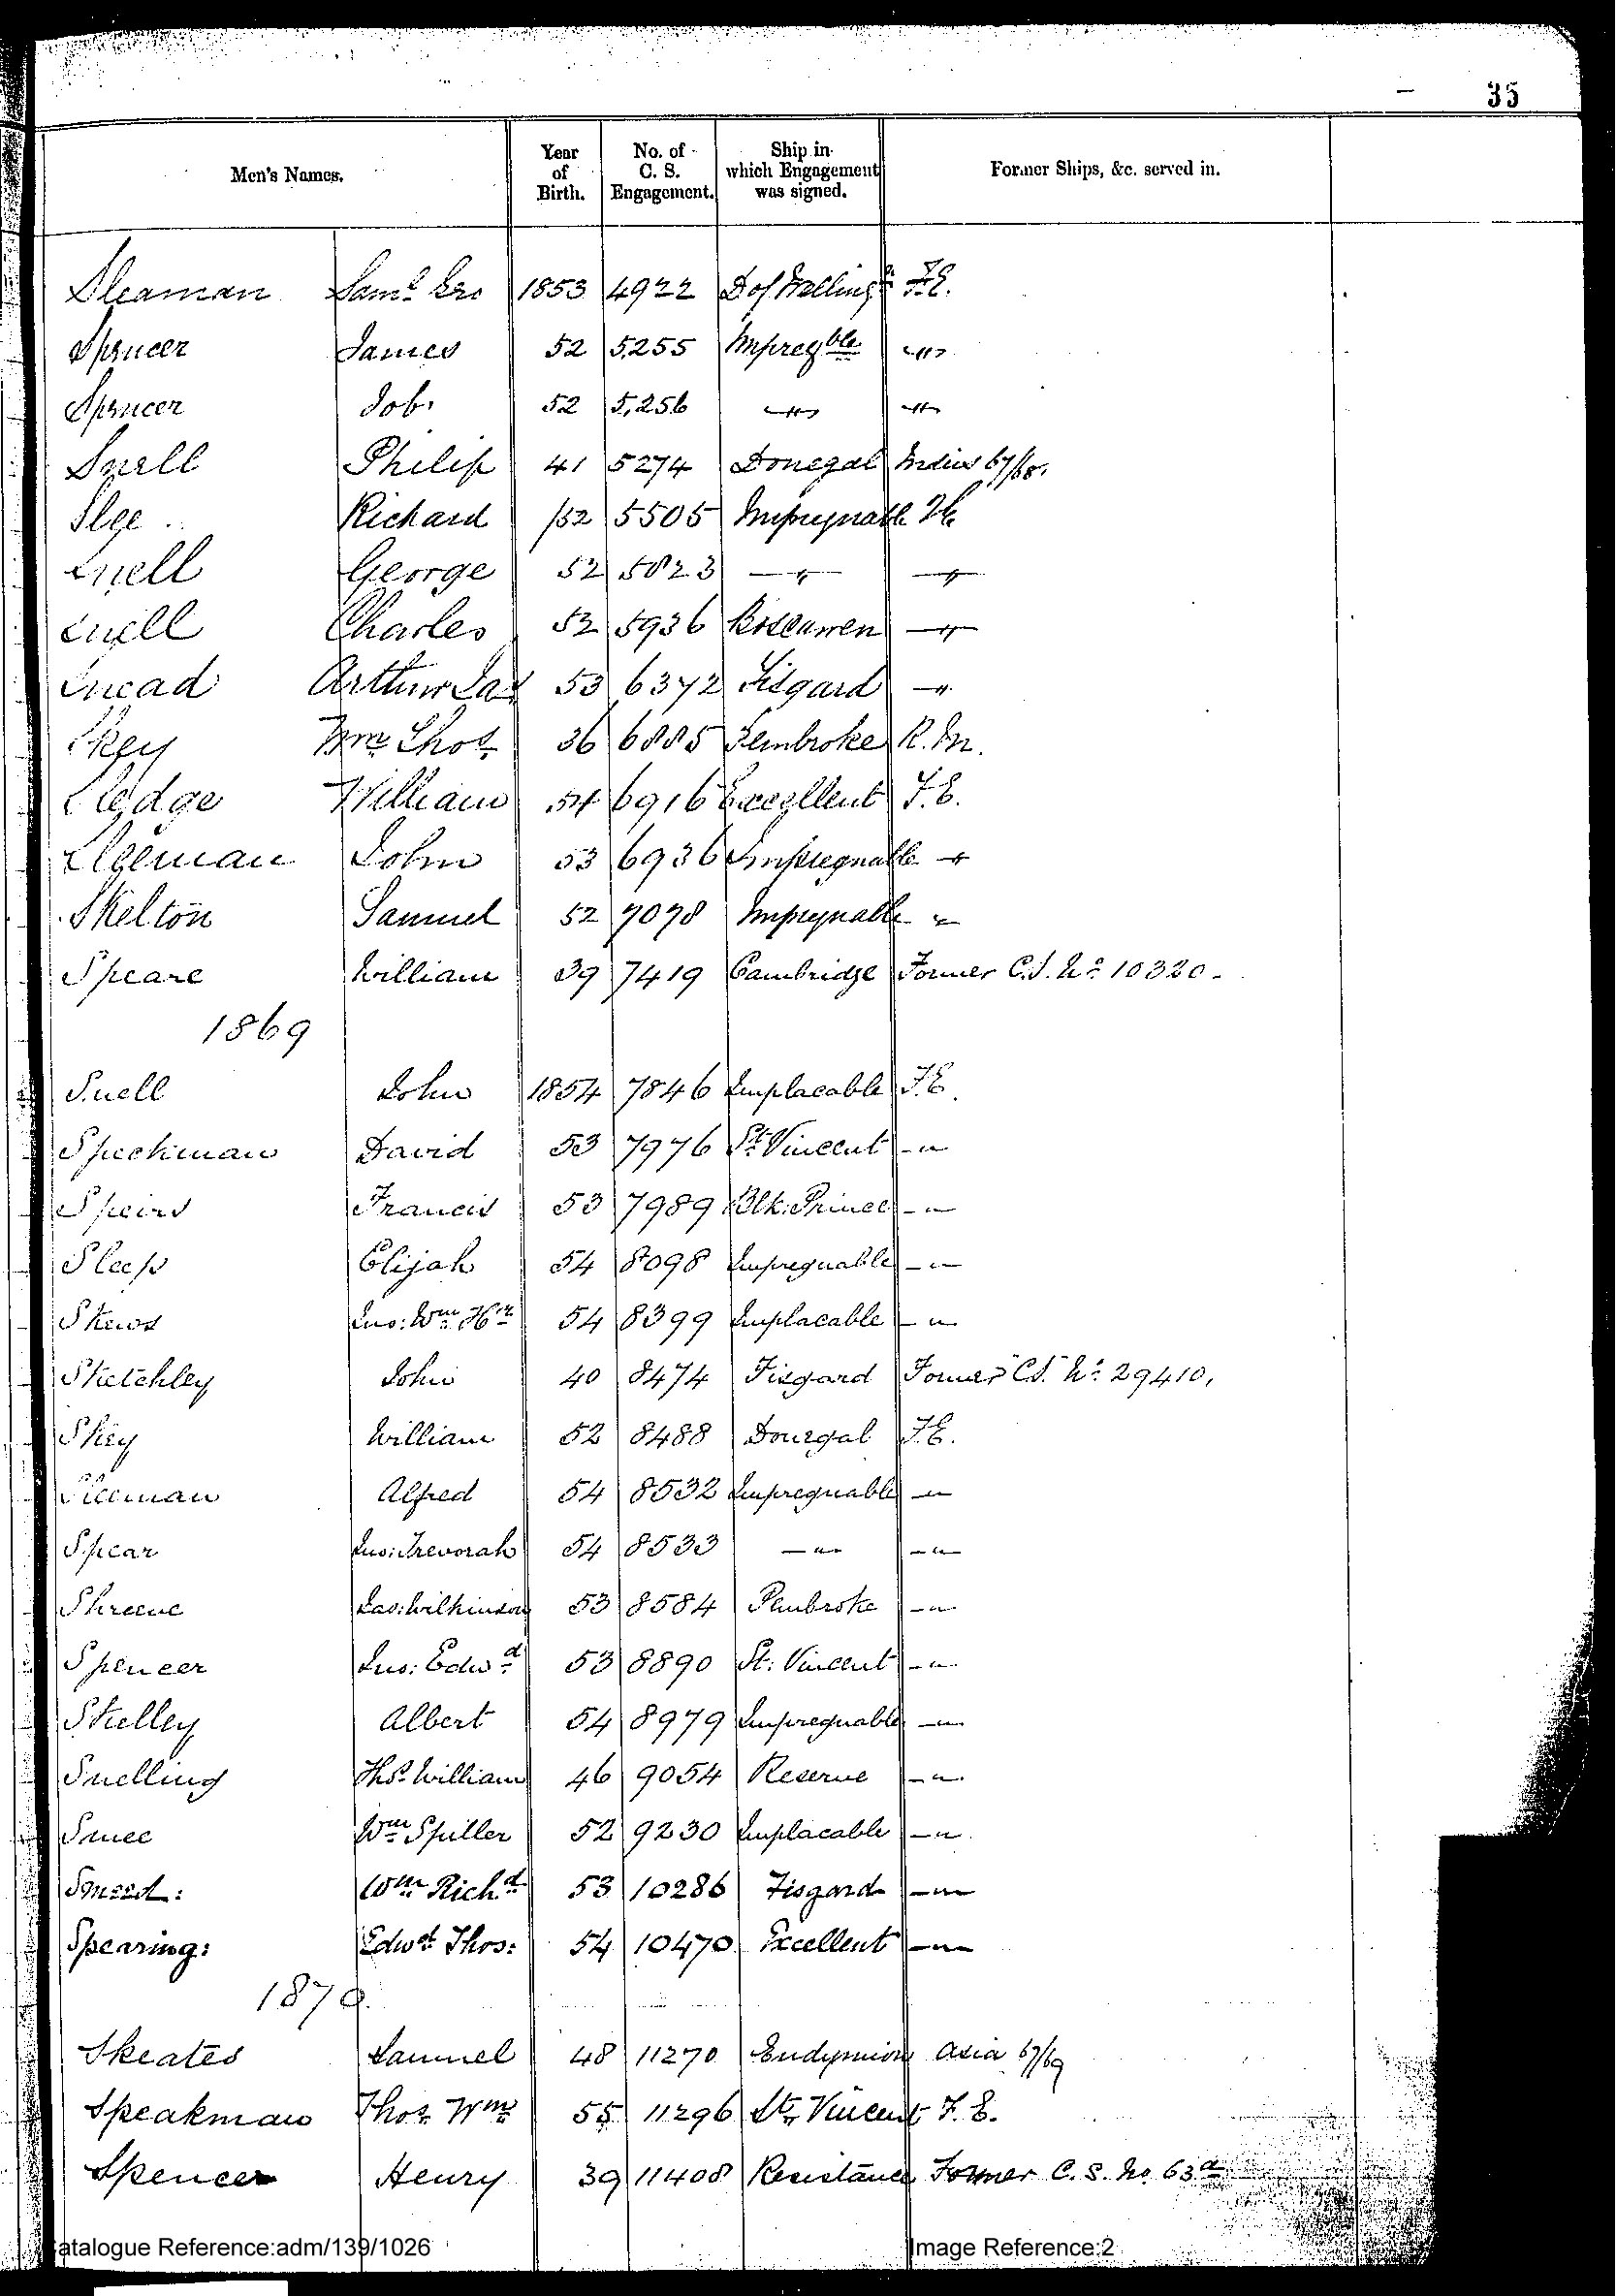 35
Men's Names. Year of Birth. No. of C. S. Engagement. Ship in which Engagement was signed. Former Ships, &c. served in.
Sleaman Saml Geo 1853 4922 D of Wellingn F.E.
Spencer James 52 5255 Impregble "
Spencer Job. 52 5,256 " "
Snell Philip 41 5274 Donegal Indus 67/68.
Slee Richard /52 5505 Impregnable FE
Snell George 52 5823 " "
Snell Charles 52 5936 Boscawen "
Snead Arthur Jas 53 6372 Fisgard "
Skey Wm Thos 36 6885 Pembroke R.M.
Sledge William 54 6916 Excellent F.E.
Sleeman John 53 6936 Impregnable "
Skelton Samuel 52 7078 Impregnable "
Speare William 39 7419 Cambridge Former C.S. No 10320.
1869
Snell John 1854 7846 Implacable F.E.
Speckman David 53 7976 St Vincent "
Speirs Francis 53 7989 Blk: Prince "
Sleep Elijah 54 8098 Impregnable "
Skews Jno: Wm Hy 54 8399 Implacable "
Sketchley John 40 8474 Fisgard Former C.S. No 29410.
Skey William 52 8488 Donegal F.E.
Sleeman Alfred 54 8532 Impregnable "
Spear Jno: Trevorah 54 8533 " "
Skreene Jas: Wilkinson 53 8584 Pembroke "
Spencer Jno: Edwd 53 8890 St: Vincent "
Skelley Albert 54 8979 Impregnable "
Snelling Thos William 46 9054 Reserve "
Smee Wm Spiller 52 9230 Implacable "
Sneed: Wm Richd 53 10286 Fisgard "
Spearing: Edwd Thos: 54 10470 Excellent "
1870
Skeates Samuel 48 11270 Endymion Asia 67/69
Speakman Thos Wm 55 11296 St Vincent F.E.
Spencer Henry 39 11408 Resistance Former C.S. No 63a
atalogue Reference:adm/139/1026 Image Reference:2